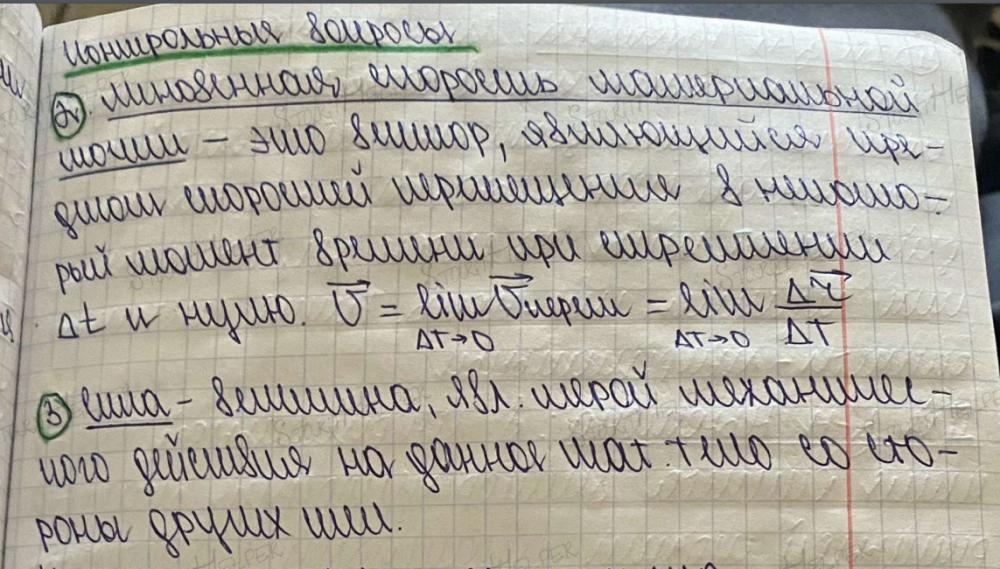 контрольные вопросы
2. мгновенная скорость материальной
точки – это вектор, являющийся пре-
делом скоростей перемещения в некото-
рый момент времени при стремлении
Δt к нулю. V = lim Vперем = lim Δr/Δt
ΔT→0 ΔT→0
3 сила – величина, явл. мерой механичес-
кого действия на данное мат. тело со сто-
роны других тел.